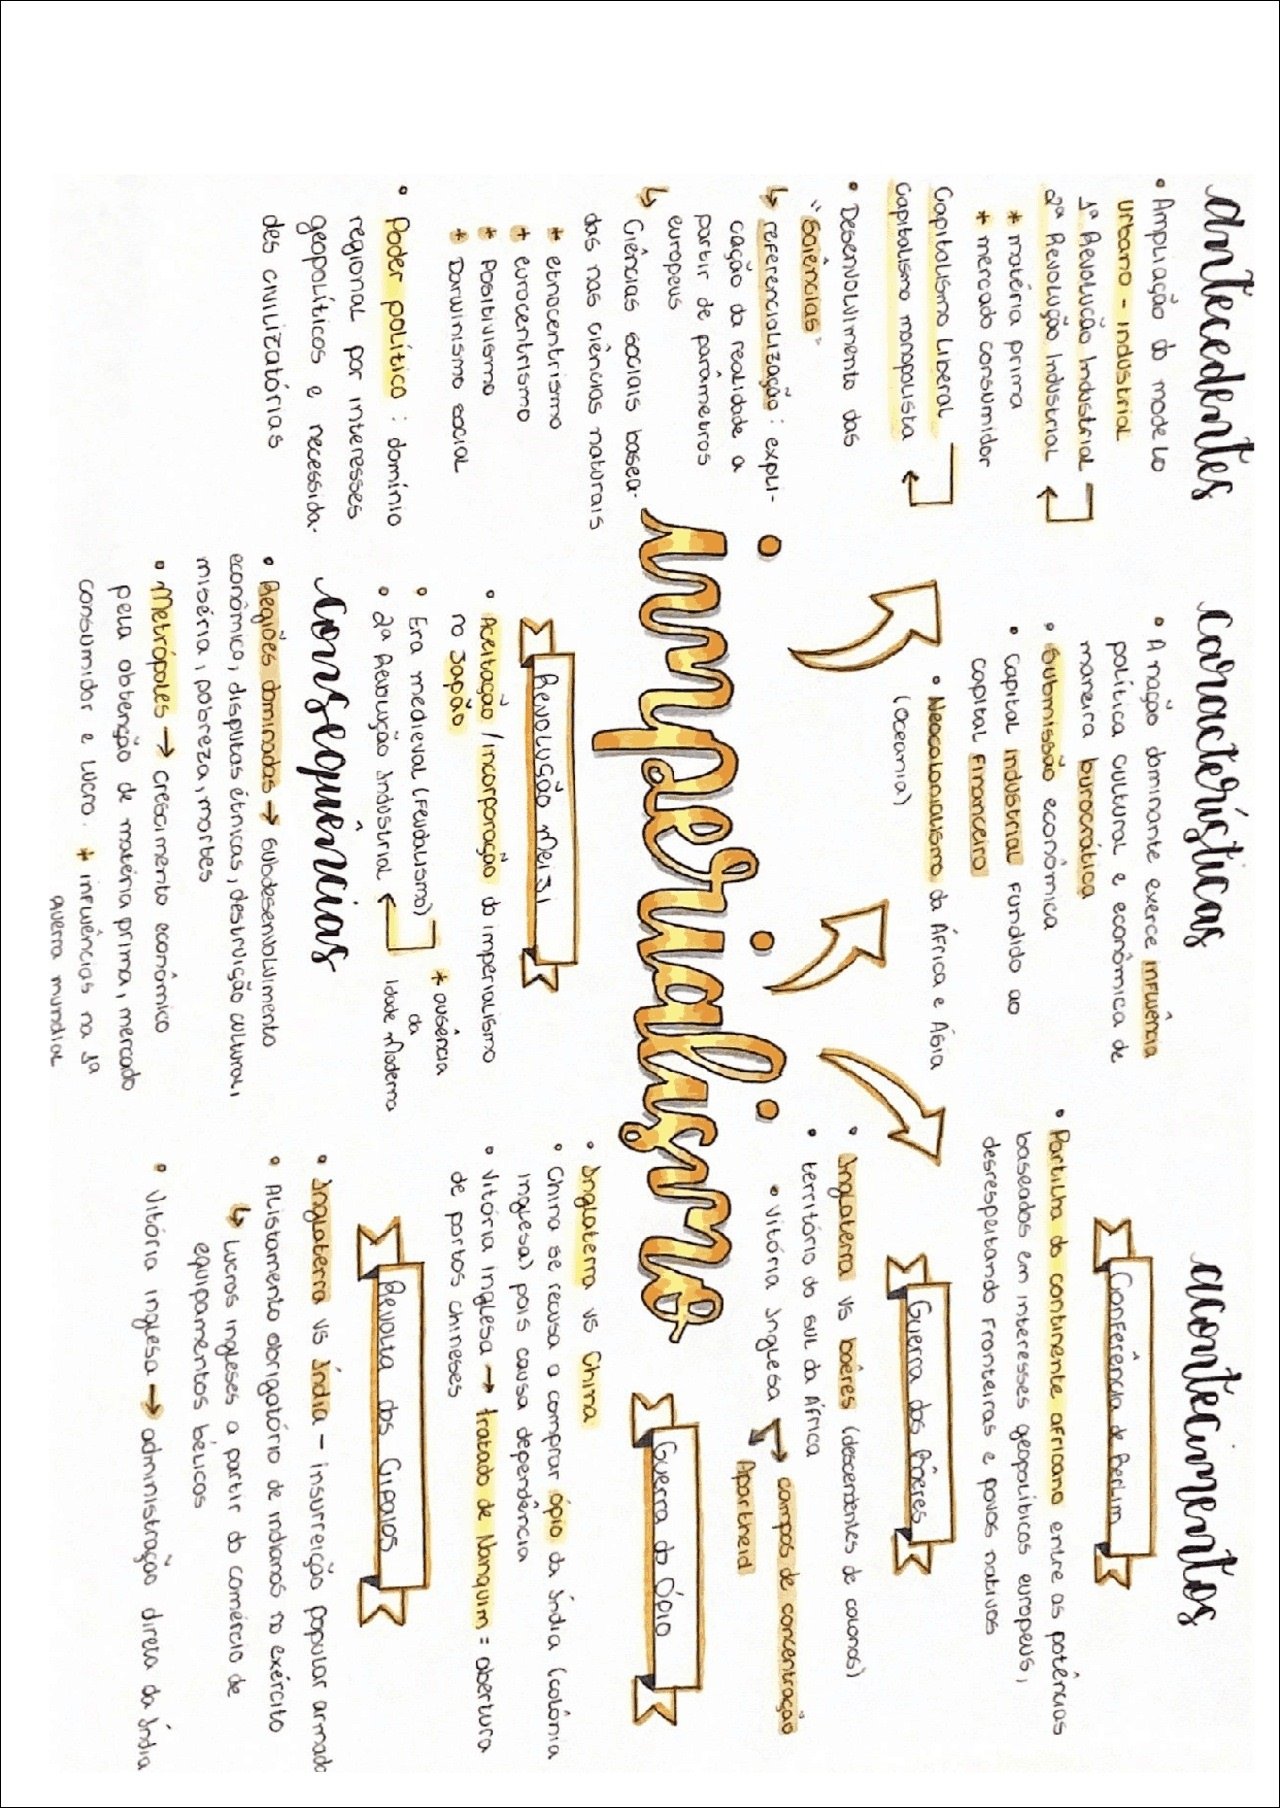 antecedentes
• Ampliação do modelo
urbano - industrial
1ª Revolução Industrial
2ª Revolução Industrial
* matéria prima
* mercado consumidor
Capitalismo Liberal
Capitalismo monopolista
• Desenvolvimento das
"Sciências"
↳ referencialização: expli-
cação da realidade a
partir de parâmetros
europeus
↳ Ciências sociais basea-
das nas ciências naturais
* etnocentrismo
* eurocentrismo
* Positivismo
* Darwinismo social
• Poder político: domínio
regional por interesses
geopolíticos e necessida-
des civilizatórias
características
• A nação dominante exerce influência
política cultural e econômica de
maneira burocrática
• Submissão econômica
• Capital industrial fundido ao
capital financeiro
• Neocolonialismo da África e Ásia
(Oceania)
imperialismo
Revolução Meiji
• Aceitação/incorporação do imperialismo
no Japão
• Era medieval (Feudalismo)
• 2ª Revolução Industrial
* ausência
da
Idade Moderna
consequências
• Regiões dominadas → subdesenvolvimento
econômico, disputas étnicas, destruição cultural,
miséria, pobreza, mortes
• Metrópoles → crescimento econômico
pela obtenção de matéria prima, mercado
consumidor e lucro. * influências na 1ª
guerra mundial
acontecimentos
Conferência de Berlim
• Partilha do continente africano entre as potências
baseados em interesses geopolíticos europeus,
desrespeitando fronteiras e povos nativos
Guerra dos Bôeres
• Inglaterra vs bôeres (descendentes de colonos)
• território do sul da África
• Vitória Inglesa → campos de concentração
Apartheid
Guerra do Ópio
• Inglaterra vs China
• China se recusa a comprar ópio da Índia (colônia
inglesa) pois causa dependência
• Vitória inglesa → tratado de Nanquim = abertura
de portos chineses
Revolta dos Cipaios
• Inglaterra vs Índia - insurreição popular armada
• Alistamento obrigatório de indianos no exército
↳ Lucros ingleses a partir do comércio de
equipamentos bélicos
• Vitória inglesa → administração direta da Índia